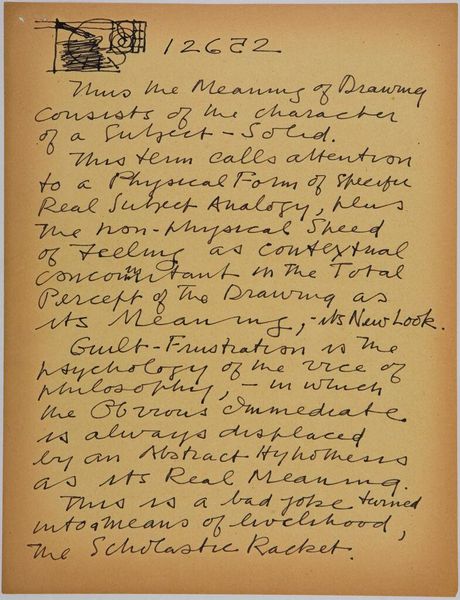 12652
Thus the Meaning of Drawing
consists of the character
of a Subject-Solid.
This term calls attention
to a Physical Form of specific
Real Subject Analogy, plus
the non-physical Speed
of Feeling as contextual
concomitant in the Total
Percept of the Drawing as
its Meaning, - its New Look.
Guilt-Frustration is the
psychology of the vice of
philosophy, - in which
the Obvious Immediate
is always displaced
by an Abstract Hyhothesis
as its Real Meaning.
This is a bad joke turned
into a means of livelihood,
the Scholastic Racket.